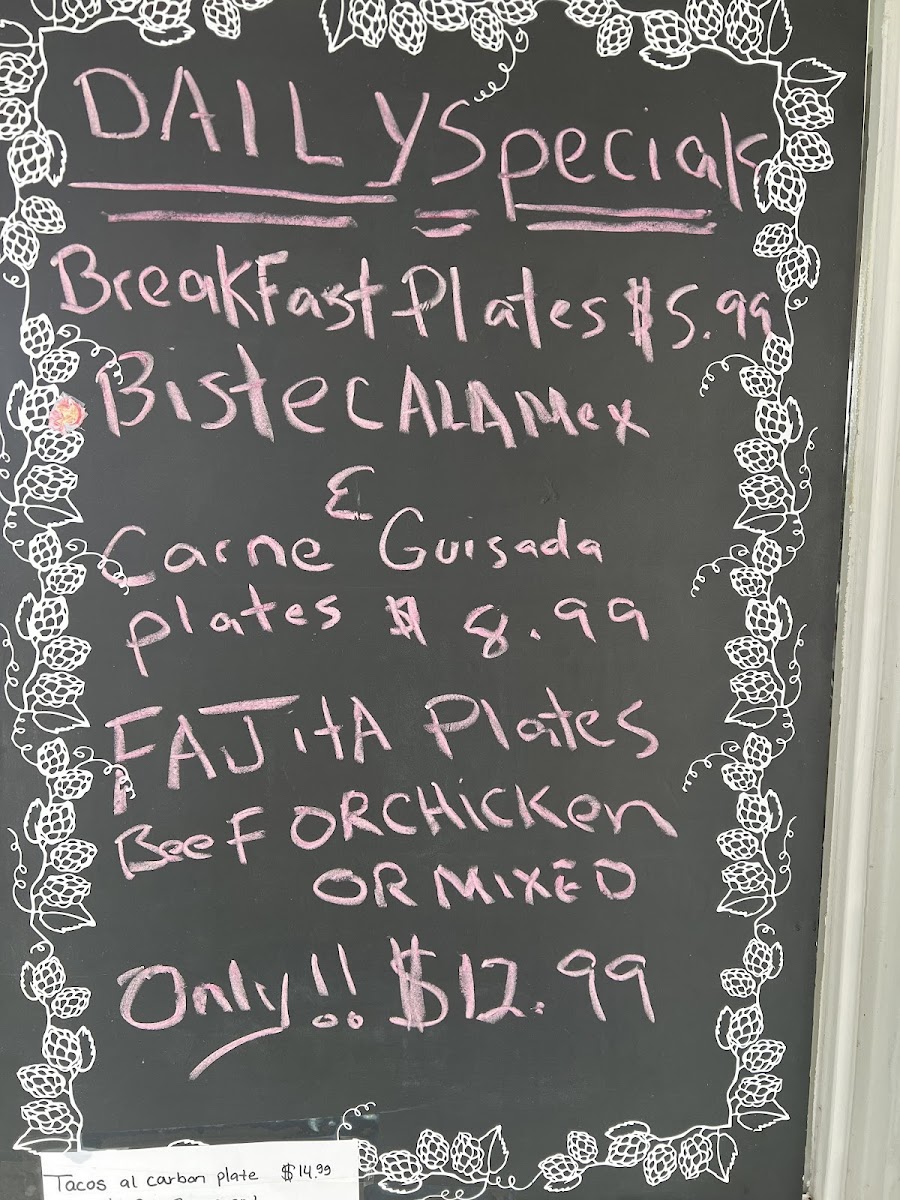 DAILY Specials
BreakFast Plates $5.99
Bistec ALA Mex
&
Carne Guisada
plates $ 8.99
FAJitA Plates
BeeF OR CHicKen
OR MIXED
Only!! $12.99
Tacos al carbon plate $14.99